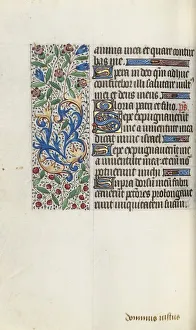 anima mea et quare contur
bas me.
Spera in deo qm adhuc
confitebor illi salutare vult
mei et deus meus.
Gloria patri et filio. ps.
Sepe expugnaverunt
me a iuventute mea
dicat nunc israel
Sepe expugnaverunt
me a iuventute mea et enim no
potuerunt michi
Supra dorsum meum fabri
caverunt peccatores prolongave
runt iniquitatem suam.
dominus iustus